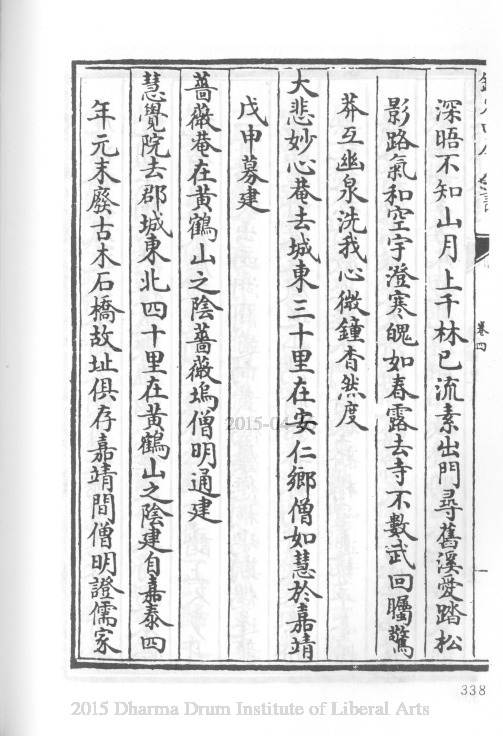 深晤不知山月上千林已流素出門尋舊溪愛踏松
影路氣和空宇澄寒魄如春露去寺不數武回矚驚
莽互幽泉洗我心微鐘杳然度
大悲妙心菴去城東三十里在安仁鄉僧如慧於嘉靖
戊申募建
薔薇菴在黃鶴山之陰薔薇塢僧明通建
慧覺院去郡城東北四十里在黃鶴山之陰建自嘉泰四
年元末廢古木石橋故址俱存嘉靖間僧明證儒家
卷四
338
2015-04
2015 Dharma Drum Institute of Liberal Arts